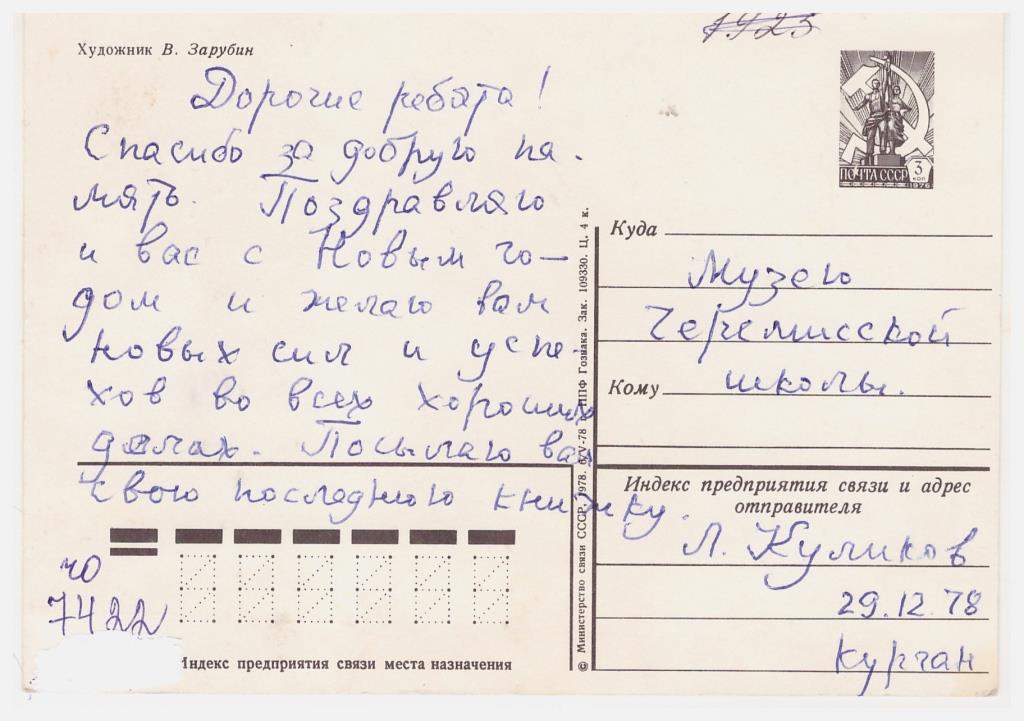 1923
Художник В. Зарубин
Дорогие ребята!
Спасибо за добрую па-
мять. Поздравляю
и вас с Новым го-
дом и желаю вам
новых сил и успе-
хов во всех хороших
делах. Посылаю вам
свою последнюю книжку.
ПОЧТА СССР
3
КОП
1976
Куда
Музею
Черемисской
Кому школы.
Индекс предприятия связи и адрес
отправителя
Л. Куликов
29.12.78
Курган
© Министерство связи СССР, 1978. 6/V-78 ППФ Гознака. Зак. 109330. Ц. 4 к.
чо
7422
Индекс предприятия связи места назначения